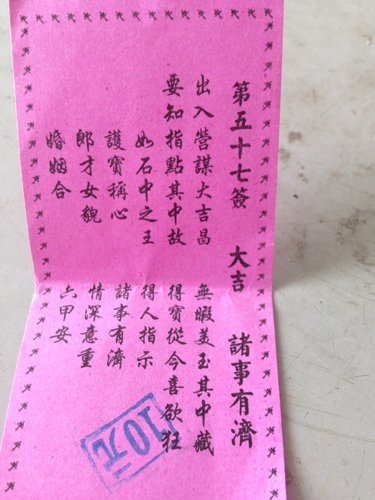 第五十七簽 大吉 諸事有濟
出入營謀大吉昌 無暇美玉其中藏
要知指點其中故 得寶從今喜欲狂
如石中之王 得人指示
護寶稱心 諸事有濟
郎才女貌 情深意重
婚姻合 六甲安
10元